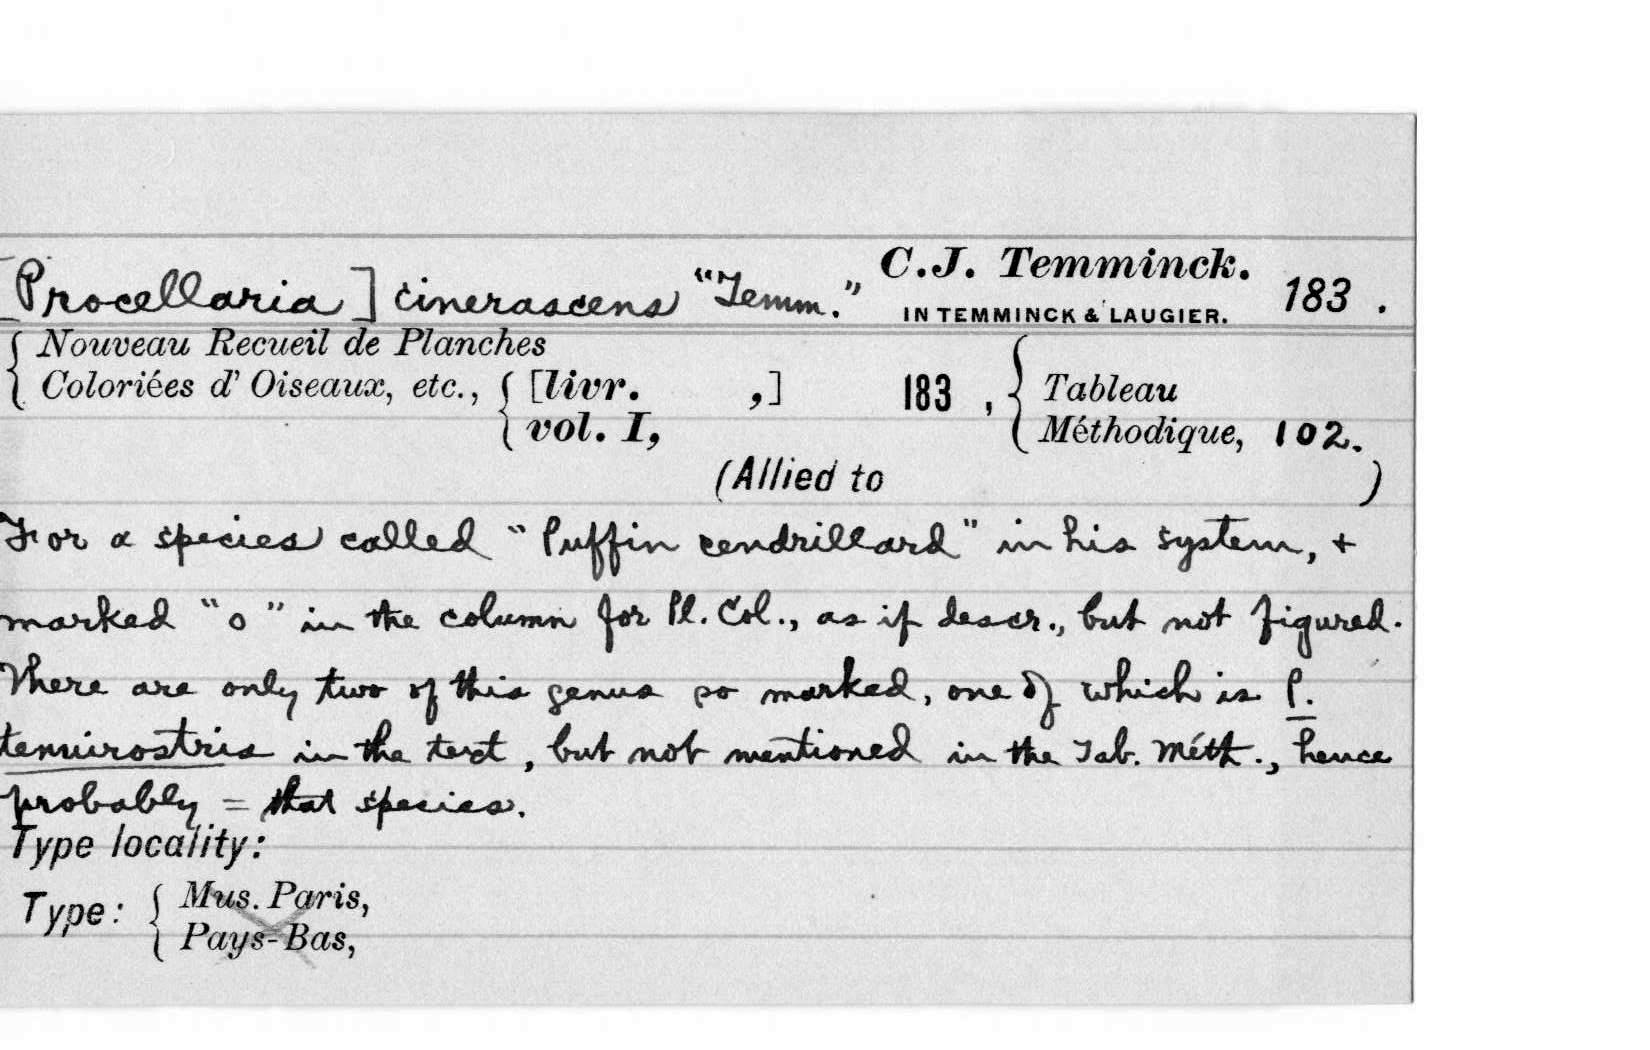 [Procellaria] cinerascens "Temm." C.J. Temminck. 183.
IN TEMMINCK & LAUGIER.
{ Nouveau Recueil de Planches
Coloriées d' Oiseaux, etc., { [livr. ,] 183 , { Tableau
vol. I, Méthodique, 102.
(Allied to )
For a species called "Puffin cendrillard" in his system, +
marked "o" in the column for Pl. Col., as if descr., but not figured.
There are only two of this genus so marked, one of which is P.
tenuirostris in the text, but not mentioned in the Tab. Méth., hence
probably = that species.
Type locality:
Type: { Mus. Paris,
Pays-Bas,